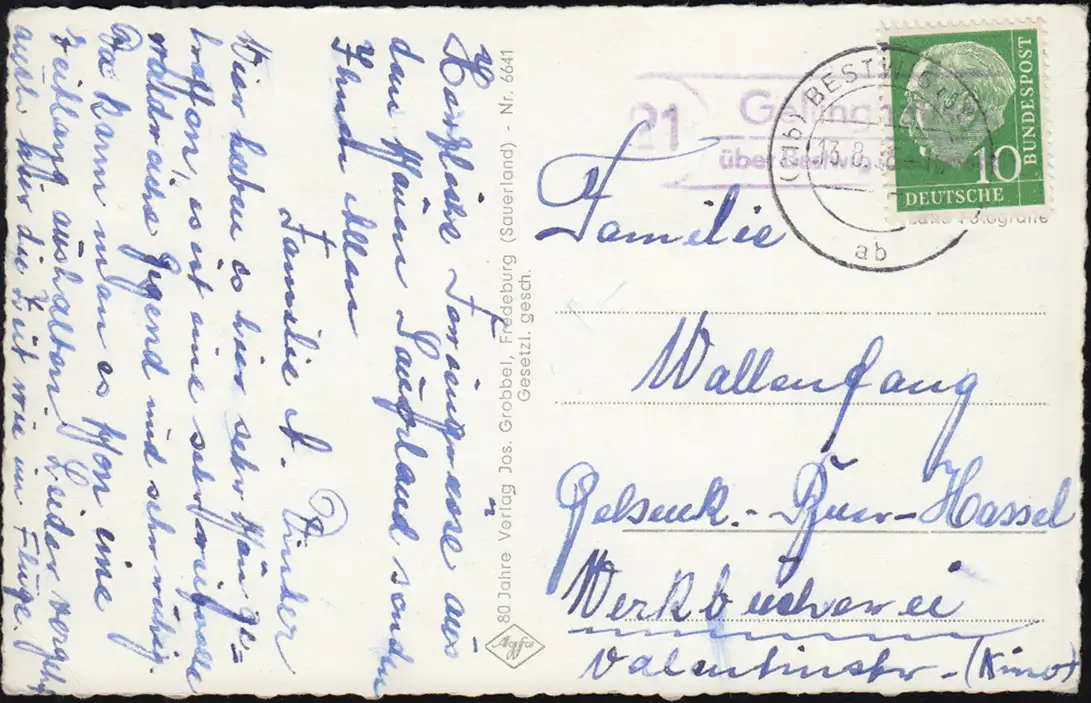 Herzliche Feriengrüsse aus
dem schönen Sauerland senden
Ihnen allen
Familie A.
Hier haben es hier sehr schön ge=
troffen, es ist eine sehr reizvolle
waldreiche Gegend und sehr ruhig.
Da kann man es schon eine
Zeitlang aushalten. Leider vergeht
auch hier die Zeit wie im Fluge.
80 Jahre Verlag Jos. Grobbel, Fredeburg (Sauerland) - Nr. 6641
Gesetzl. gesch.
Agfa
21
über Bestwig
BESTWIG
13.8.
ab
10
DEUTSCHE
BUNDESPOST
Fotografie
Familie
Wallenfang
Gelsenk.-Buer-Hassel
Werkbücherei
Valentinstr. (Kino)